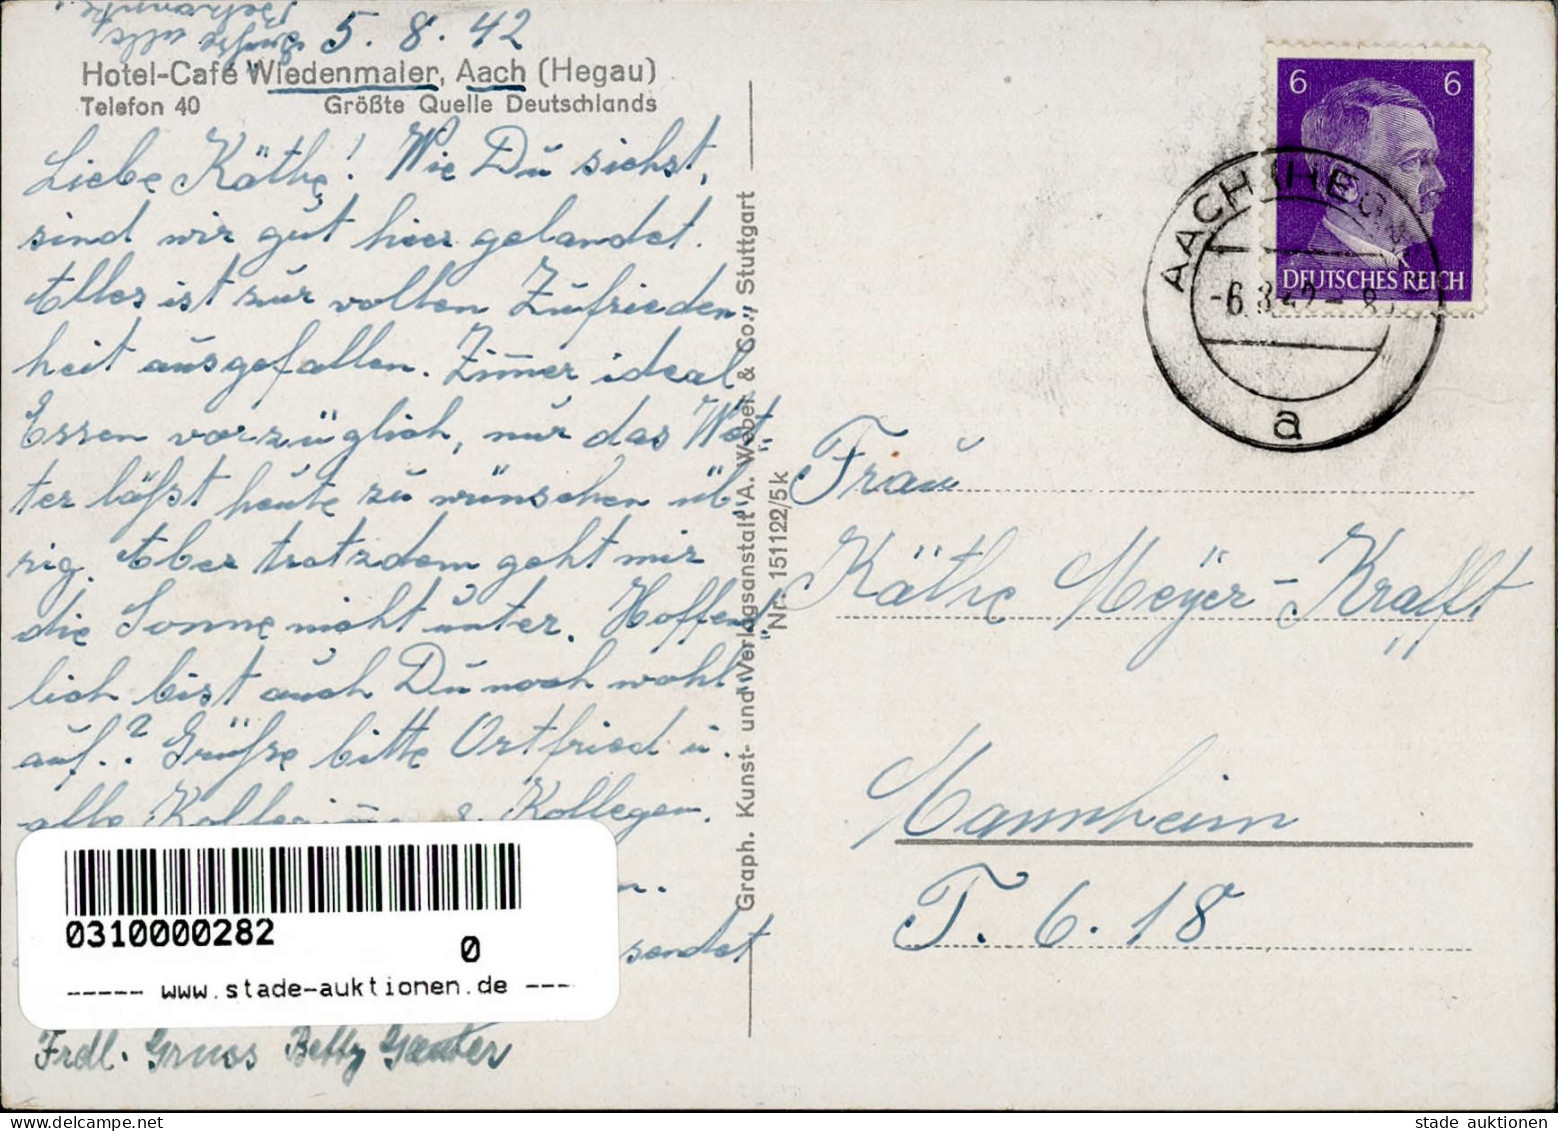 5. 8. 42
Hotel-Café Wiedenmaier, Aach (Hegau)
Telefon 40 Größte Quelle Deutschlands
Liebe Käthe! Wie Du siehst,
sind wir gut hier gelandet.
Alles ist zur vollen Zufrieden-
heit ausgefallen. Zim̅er ideal
Essen vorzüglich, nur das Wet-
ter läßt heute zu wünschen üb-
rig. Aber trotzdem geht mir
die Sonne nicht unter. Hoffent-
lich bist auch Du noch wohl
auf.? Grüße bitte Ortfried u.
alle Kolleginnen & Kollegen.
sendet
Frdl. Gruss Betty
Graph. Kunst- und Verlagsanstalt A. Weber & Co., Stuttgart
Nr. 151122/5k
6 6
DEUTSCHES REICH
AACH (HEGAU)
-6.8.42-8
a
Frau
Käthe Meyer-Krafft
Mannheim
T. 6. 18
0310000282
0
----- www.stade-auktionen.de ---
stade auktionen